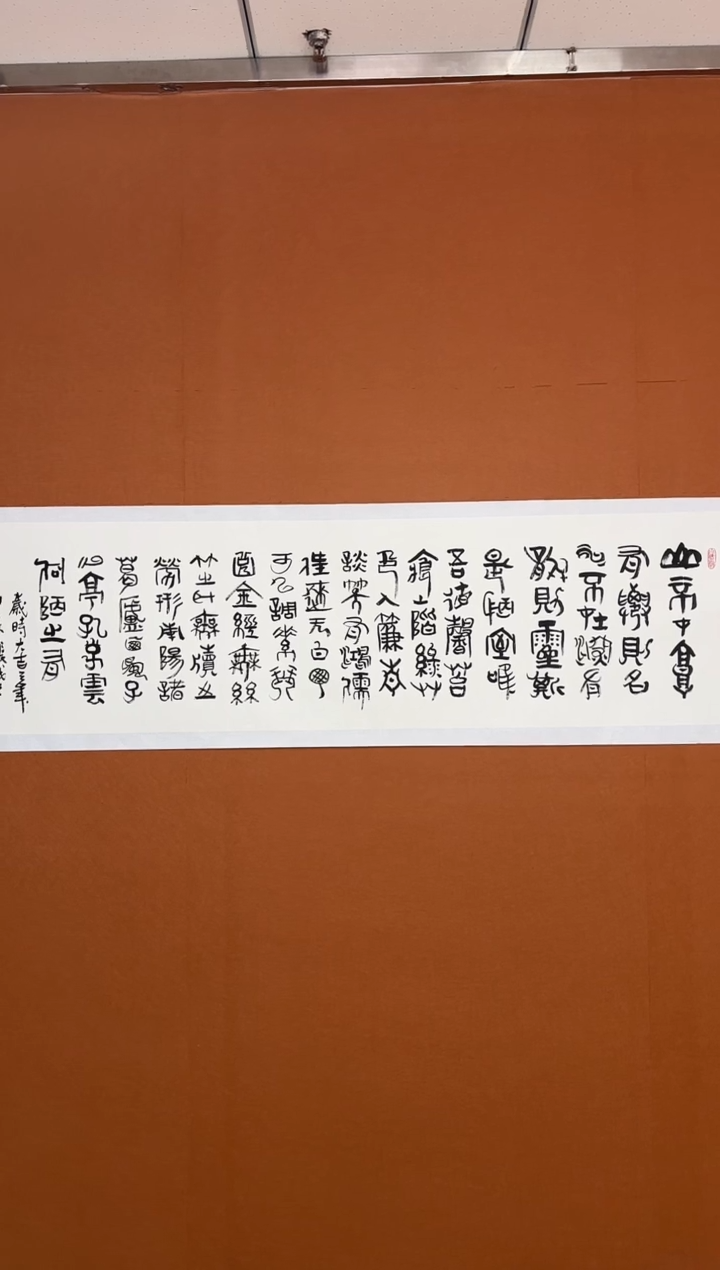 山不在高
有僊則名
水不在深有
龍則靈斯
是陋室唯
吾德馨苔
痕上階綠艸
色入簾青
談笑有鴻儒
往來无白丁
可以調素琴
閱金經無絲
竹之耳無牘之
勞形南陽諸
葛廬西蜀子
云亭孔子雲
何陋之有
歲時年